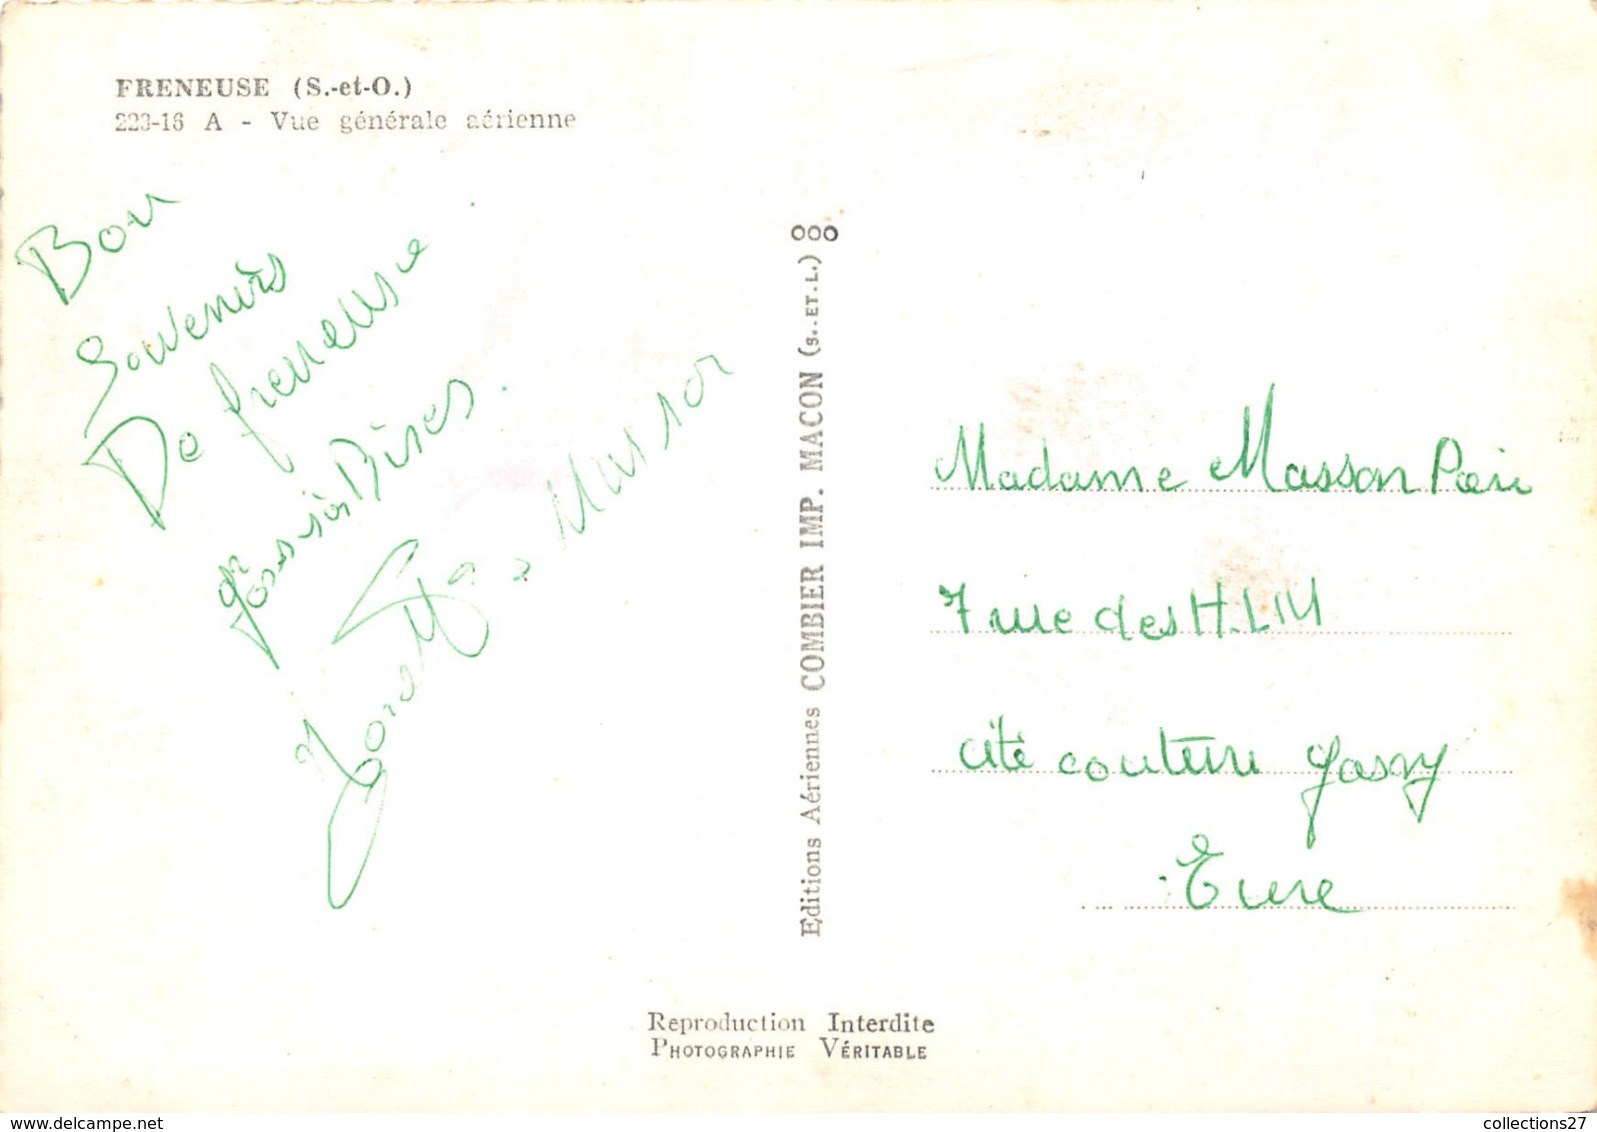 FRENEUSE (S.-et-O.)
223-16 A - Vue générale aérienne
Bon
Souvenirs
De freneuse
Bises.
Masson
000
Editions Aériennes COMBIER IMP. MACON (S. ET. L.)
Madame Masson
7 rue des H.L.M
cité couture Gasny
Eure
Reproduction Interdite
PHOTOGRAPHIE VÉRITABLE
collections27